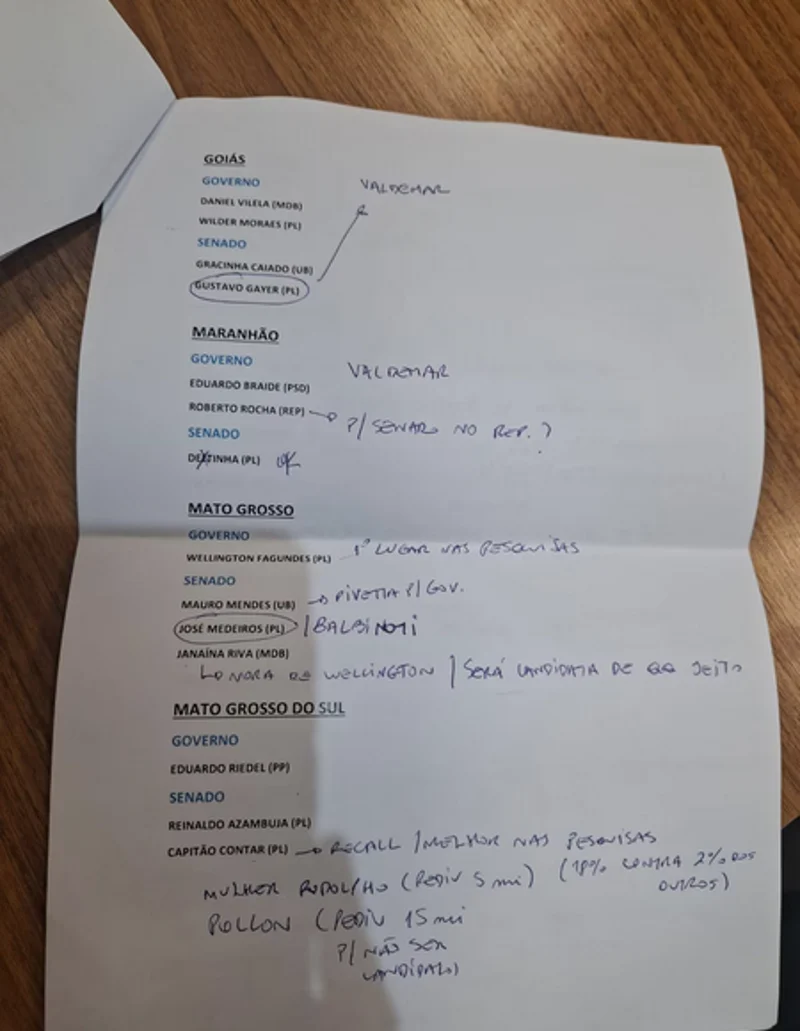 GOIÁS
GOVERNO
VALDEMAR
DANIEL VILELA (MDB)
WILDER MORAES (PL)
SENADO
GRACINHA CAIADO (UB)
GUSTAVO GAYER (PL)
MARANHÃO
GOVERNO
VALDEMAR
EDUARDO BRAIDE (PSD)
ROBERTO ROCHA (REP) P/ SENADO NO REP. ?
SENADO
DETINHA (PL) OK
MATO GROSSO
GOVERNO
WELLINGTON FAGUNDES (PL) 1º LUGAR NAS PESQUISAS
SENADO
MAURO MENDES (UB) PIVETTA P/ GOV.
JOSÉ MEDEIROS (PL) / BALBINOTI
JANAÍNA RIVA (MDB)
NORA DE WELLINGTON / SERÁ CANDIDATA DE QQ JEITO
MATO GROSSO DO SUL
GOVERNO
EDUARDO RIEDEL (PP)
SENADO
REINALDO AZAMBUJA (PL)
CAPITÃO CONTAR (PL) RECALL / MELHOR NAS PESQUISAS
(18% CONTRA 2% DOS OUTROS)
MULHER RODOLFHO (PEDIU 5 mi)
POLLON (PEDIU 15 mi
P/ NÃO SER
CANDIDATO)